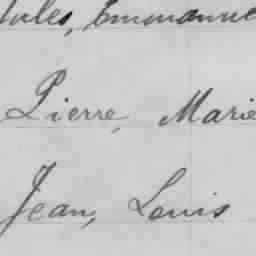 Jules, Emmanue
Pierre, Marie
Jean, Louis